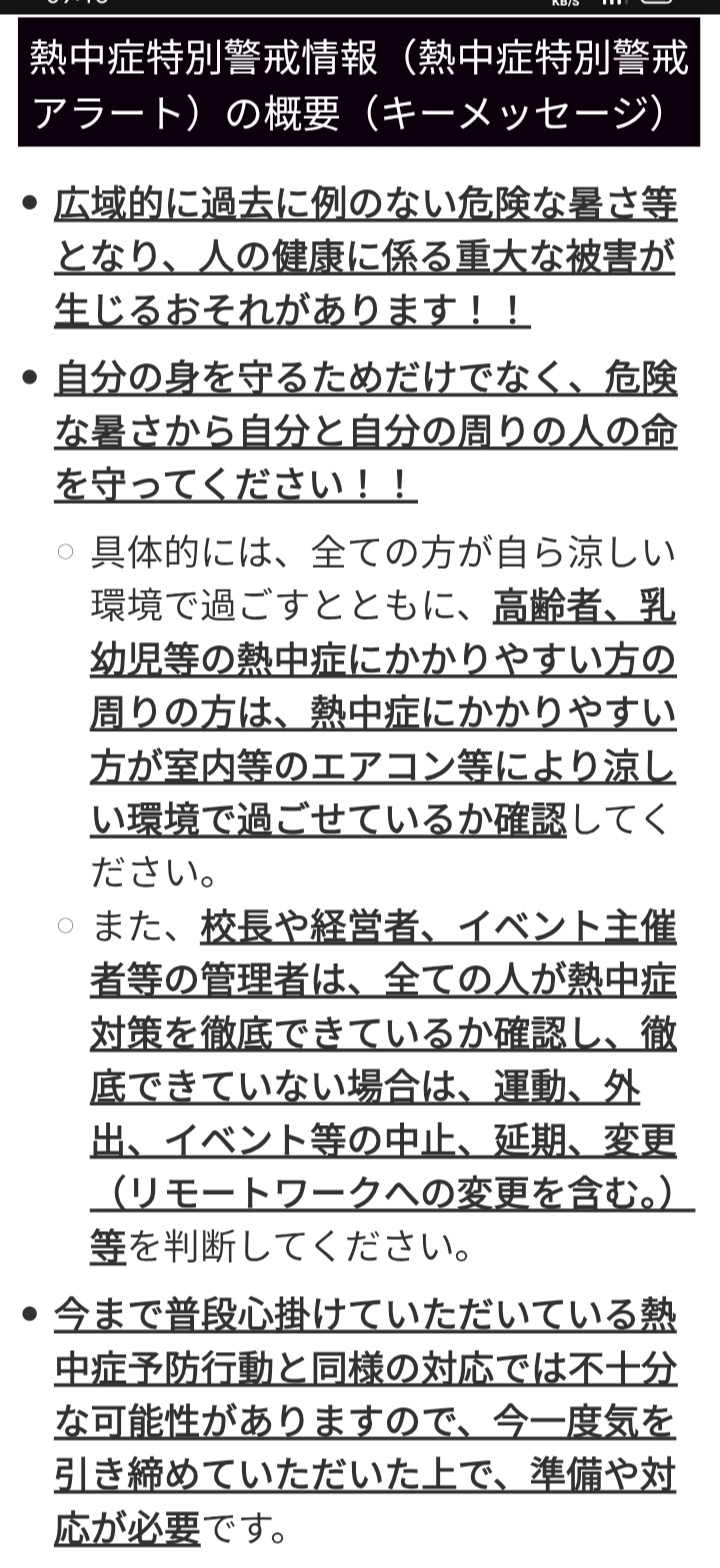 KB/S
熱中症特別警戒情報（熱中症特別警戒
アラート）の概要（キーメッセージ）
• 広域的に過去に例のない危険な暑さ等
となり、人の健康に係る重大な被害が
生じるおそれがあります！！
• 自分の身を守るためだけでなく、危険
な暑さから自分と自分の周りの人の命
を守ってください！！
○ 具体的には、全ての方が自ら涼しい
環境で過ごすとともに、高齢者、乳
幼児等の熱中症にかかりやすい方の
周りの方は、熱中症にかかりやすい
方が室内等のエアコン等により涼し
い環境で過ごせているか確認してく
ださい。
○ また、校長や経営者、イベント主催
者等の管理者は、全ての人が熱中症
対策を徹底できているか確認し、徹
底できていない場合は、運動、外
出、イベント等の中止、延期、変更
（リモートワークへの変更を含む。）
等を判断してください。
• 今まで普段心掛けていただいている熱
中症予防行動と同様の対応では不十分
な可能性がありますので、今一度気を
引き締めていただいた上で、準備や対
応が必要です。